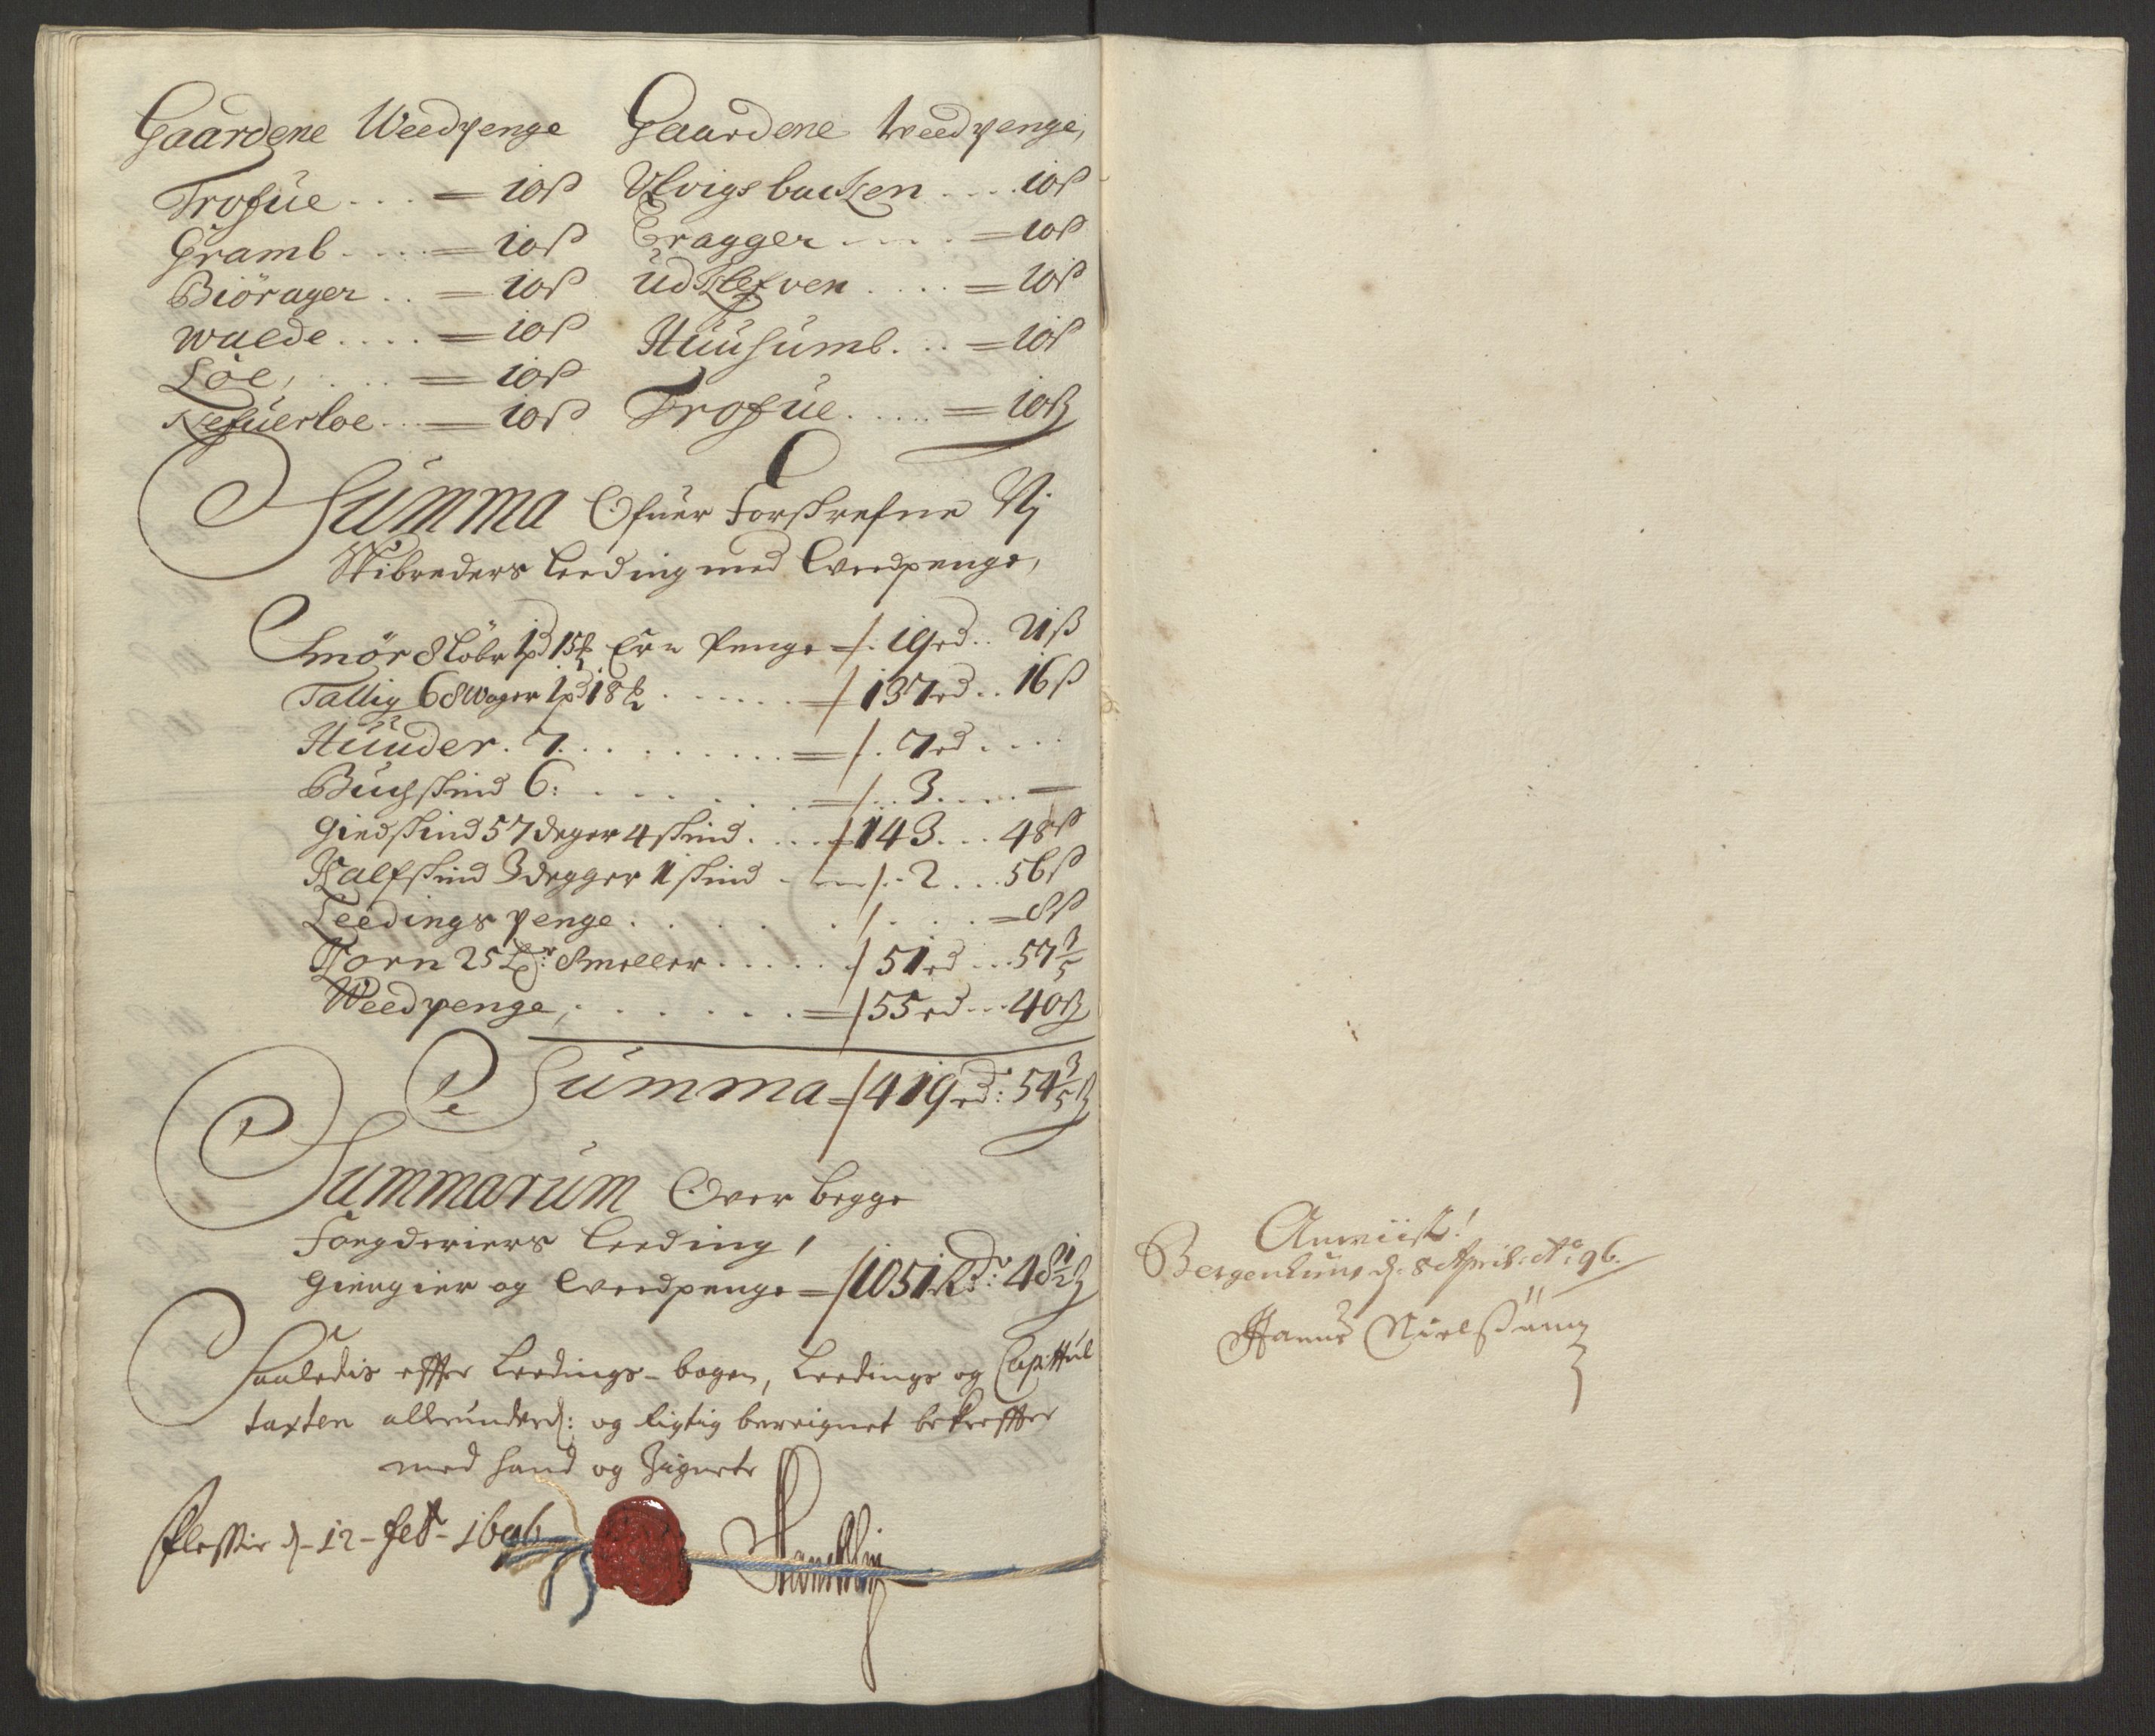 Gaardene Weedpenge
Trofue . . . = 10ß
Gramb . . . . = 10ß
Biörager . . = 10ß
Walde . . . . = 10ß
Löe, . . . = 10ß
Nefuerloe . . . = 10ß
Gaardene Weedpenge,
Ulvigsbacken . . . . 10ß
Cragger . . . . = 10ß
Udklefven . . . . = 10ß
Huusumb . . . = 10ß
Trofue . . . . . = 10ß
Summa Ofuer Forskrefne Vj
Skibreders Leeding med Weedpenge,
Smör 8 Löbr 1pd 15 Er i Penge = 19rd .. 21ß
Tallig 68 Woger 1pd 18 . . . . . . = 137rd .. 16ß
Huuder . 7 . . . . . . . . = 7rd . . . .
Buchskind 6: . . . . . . . = 3 . . . . —
Giedskind 57 deger 4 skind . . . . = 143 . . . 48ß
Kalfskind 3 degger 1 skind . — 2 . . . 56ß
Leedings penge . . . . . . . . . . = 8ß
Korn 25 Smeller . . . . . 51rd . . . 57 3/5
Weedpenge, . . . . . . . = 55rd . . . 40ß
Summa = 419rd: 54 3/5 ß
Summarum Over begge
Fougderiers Leeding,
Giengier og Weedpenge = 1051Rdr: 48 1/2 ß
Saaledis effter Leedings-bogen, Leedings og Capittul
taxten og rigtig bereignet bekreffter
med haand og Zignete
d- 12 - Feb - 1696
Anviist!
Bergenhuus d. 8 April: Ao: 96.
Hanns Nielssønn